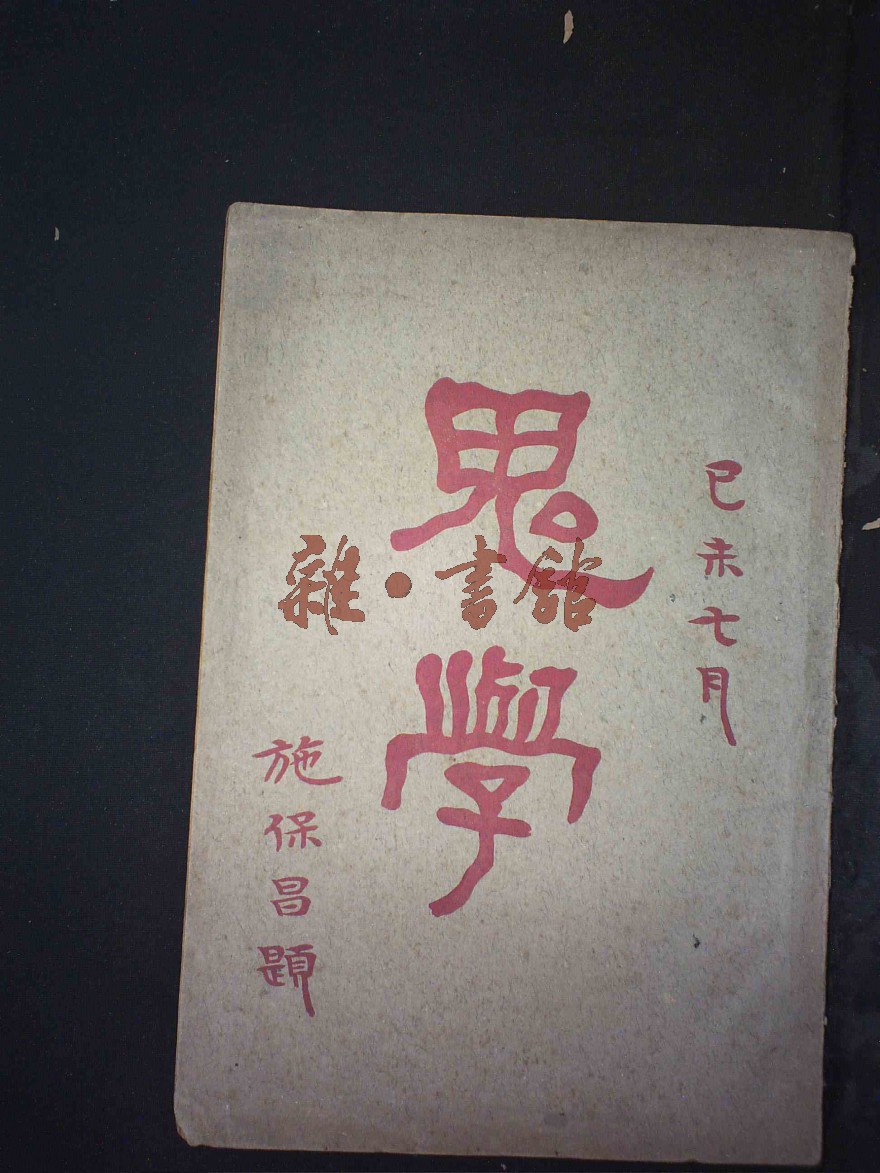 己未七月
鬼學
施保昌題
雜·書館